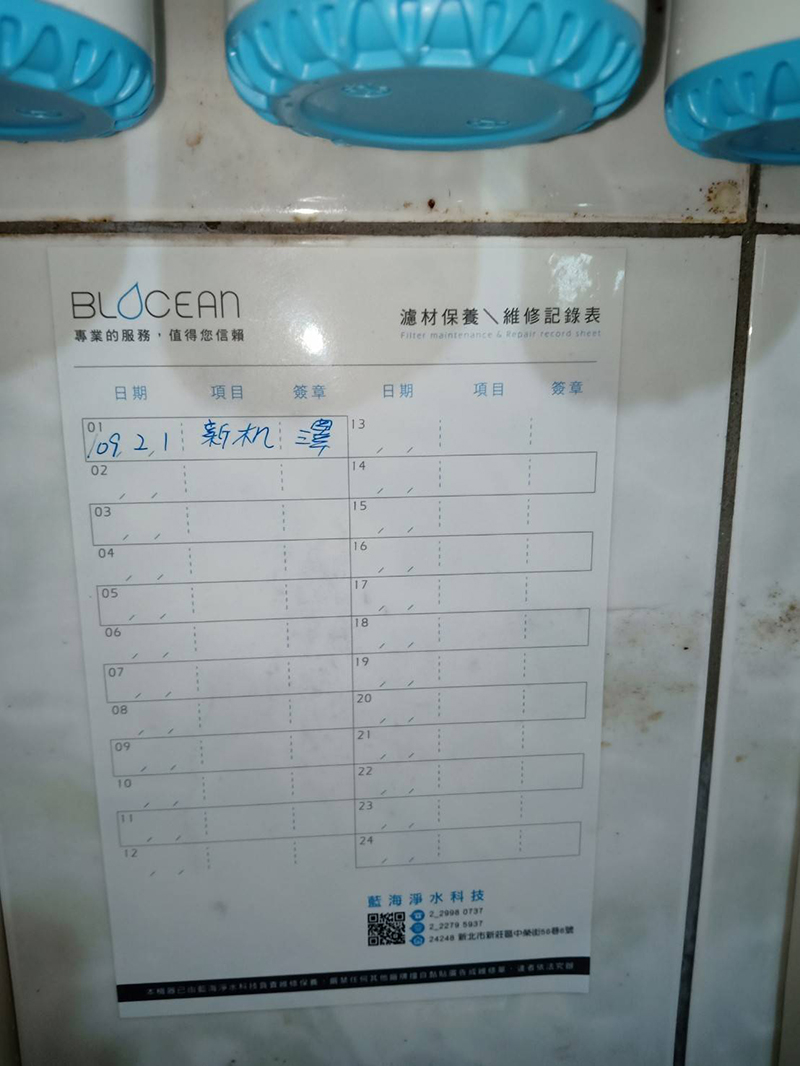 BLOCEAN
專業的服務，值得您信賴
濾材保養＼維修記錄表
Filter maintenance & Repair record sheet
日期 項目 簽章 日期 項目 簽章
01 109.2.1 新机 澤
02
03
04
05
06
07
08
09
10
11
12
13
14
15
16
17
18
19
20
21
22
23
24
藍海淨水科技
2_2998 0737
2_2279 5937
24248 新北市新莊區中榮街56巷6號
本機器已由藍海淨水科技負責維修保養，嚴禁任何其他廠商擅自黏貼廣告或維修單，違者依法究辦